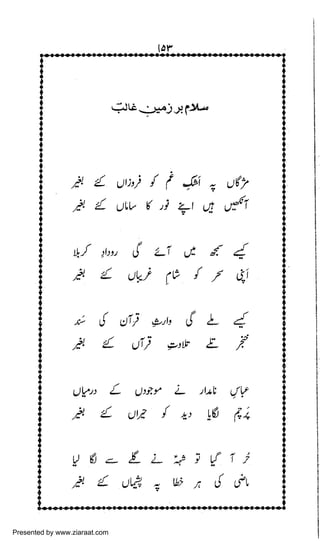 ۱۵۳
سلام بر زمینِ غالبؔ
مژگاں پہ اشکِ غم کو فروزاں کئے بغیر
آنکھیں ہیں اپنے نور کا ساماں کئے بغیر
کیسے سمجھ میں آئے گی رودادِ کربلا
اپنی سحر کو شامِ غریباں کئے بغیر
کیسے ملے گی وارثِ قرآن کی سَنَد
خنجر تلے تلاوتِ قرآں کئے بغیر
عباسِ نامدار نے موجوں کے درمیاں
پَرچم لگایا دید کو حیراں کئے بغیر
حُر آ گیا تو شہہؑ نے گلے سے لگا لیا
ماضی کی ہر خطا پہ پشیماں کئے بغیر
Presented by www.ziaraat.com